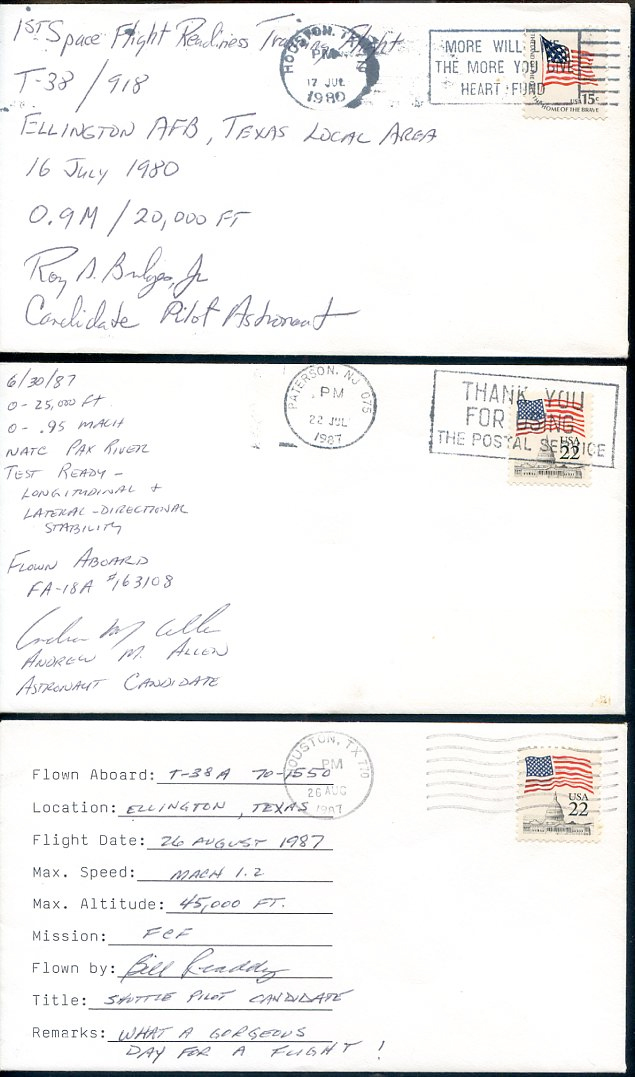 1ST Space Flight Readiness Training Flight
T-38/918
ELLINGTON AFB, TEXAS LOCAL AREA
16 JULY 1980
0.9M/20,000 FT
Roy D. Bridges, Jr
Candidate Pilot Astronaut
HOUSTON, TX
PM
17 JUL
1980
MORE WILL LIVE
THE MORE YOU GIVE
HEART FUND
USA 15c
HOME OF THE BRAVE
6/30/87
0-25,000 FT
0-.95 MACH
NATC PAX RIVER
TEST READY -
LONGITUDINAL +
LATERAL-DIRECTIONAL
STABILITY
FLOWN ABOARD
FA-18A #163108
Andrew M Allen
ANDREW M. ALLEN
ASTRONAUT CANDIDATE
PATERSON, NJ 075
PM
22 JUL
1987
THANK YOU
FOR USING
THE POSTAL SERVICE
USA
22
Flown Aboard: T-38A 70-1550
Location: ELLINGTON, TEXAS
Flight Date: 26 AUGUST 1987
Max. Speed: MACH 1.2
Max. Altitude: 45,000 FT.
Mission: FCF
Flown by: Bill Readdy
Title: SHUTTLE PILOT CANDIDATE
Remarks: WHAT A GORGEOUS
DAY FOR A FLIGHT!
HOUSTON, TX 770
PM
26 AUG
1987
USA
22